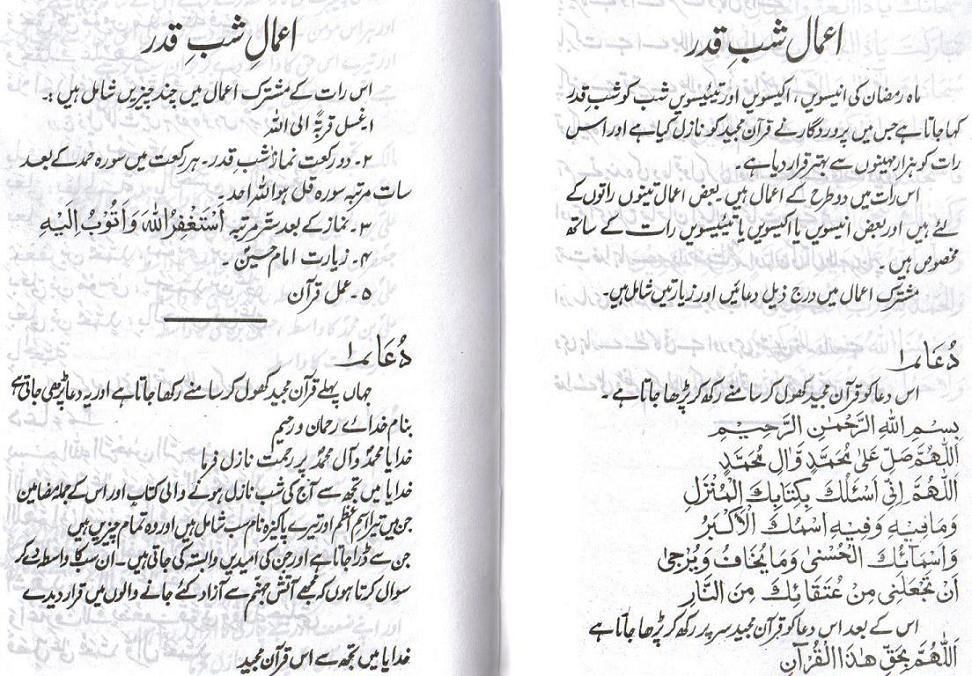 اعمال شبِ قدر
ماہ رمضان کی انیسویں، اکیسویں اور تیئیسویں شب کو شبِ قدر
کہا جاتا ہے جس میں پروردگار نے قرآن مجید کو نازل کیا ہے اور اس
رات کو ہزار مہینوں سے بہتر قرار دیا ہے۔
اس رات میں دو طرح کے اعمال ہیں۔ بعض اعمال تینوں راتوں کے
لئے ہیں اور بعض انیسویں یا اکیسویں یا تیئیسویں رات کے ساتھ
مخصوص ہیں۔
مشترک اعمال میں درج ذیل دعائیں اور زیارتیں شامل ہیں۔
دُعا ۱
اس دعا کو قرآن مجید کھول کر سامنے رکھ کر پڑھا جاتا ہے۔
بِسْمِ اللهِ الرَّحْمٰنِ الرَّحِيْمِ
اَللّٰهُمَّ صَلِّ عَلٰى مُحَمَّدٍ وَّاٰلِ مُحَمَّدٍ
اَللّٰهُمَّ اِنِّىْ اَسْئَلُكَ بِكِتَابِكَ الْمُنْزَلِ
وَمَا فِيْهِ وَفِيْهِ اسْمُكَ الْاَكْبَرُ
وَاَسْمَآئُكَ الْحُسْنٰى وَمَا يُخَافُ وَيُرْجٰى
اَنْ تَجْعَلَنِىْ مِنْ عُتَقَائِكَ مِنَ النَّارِ
اس کے بعد اس دعا کو قرآن مجید سر پر رکھ کر پڑھا جاتا ہے
اَللّٰهُمَّ بِحَقِّ هٰذَا الْقُرْاٰنِ
اعمالِ شبِ قدر
اس رات کے مشترک اعمال میں چند چیزیں شامل ہیں :۔
۱ غسل قربۃً الی اللہ
۲۔ دو رکعت نماز شب قدر۔ ہر رکعت میں سورہ حمد کے بعد
سات مرتبہ سورہ قل ہو اللہ احد۔
۳۔ نماز کے بعد ستر مرتبہ اَسْتَغْفِرُ اللهَ وَاَتُوْبُ اِلَيْهِ
۴۔ زیارت امام حسینؑ۔
۵۔ عمل قرآن
دُعا ۱
جہاں پہلے قرآن مجید کھول کر سامنے رکھا جاتا ہے اور یہ دعا پڑھی جاتی ہے
بنام خدائے رحمان و رحیم
خدایا محمدؐ و آل محمدؐ پر رحمت نازل فرما
خدایا میں تجھ سے آج کی شب نازل ہونے والی کتاب اور اس کے جملہ مضامین
جن میں تیرا اسم اعظم اور تیرے پاکیزہ نام سب شامل ہیں اور وہ تمام چیزیں ہیں
جن سے ڈرا جاتا ہے اور جن کی امیدیں وابستہ کی جاتی ہیں۔ ان سب کا واسطہ دے کر
سوال کرتا ہوں کہ مجھے آتش جہنم سے آزاد کئے جانے والوں میں قرار دیدے
خدایا میں تجھ سے اس قرآن مجید